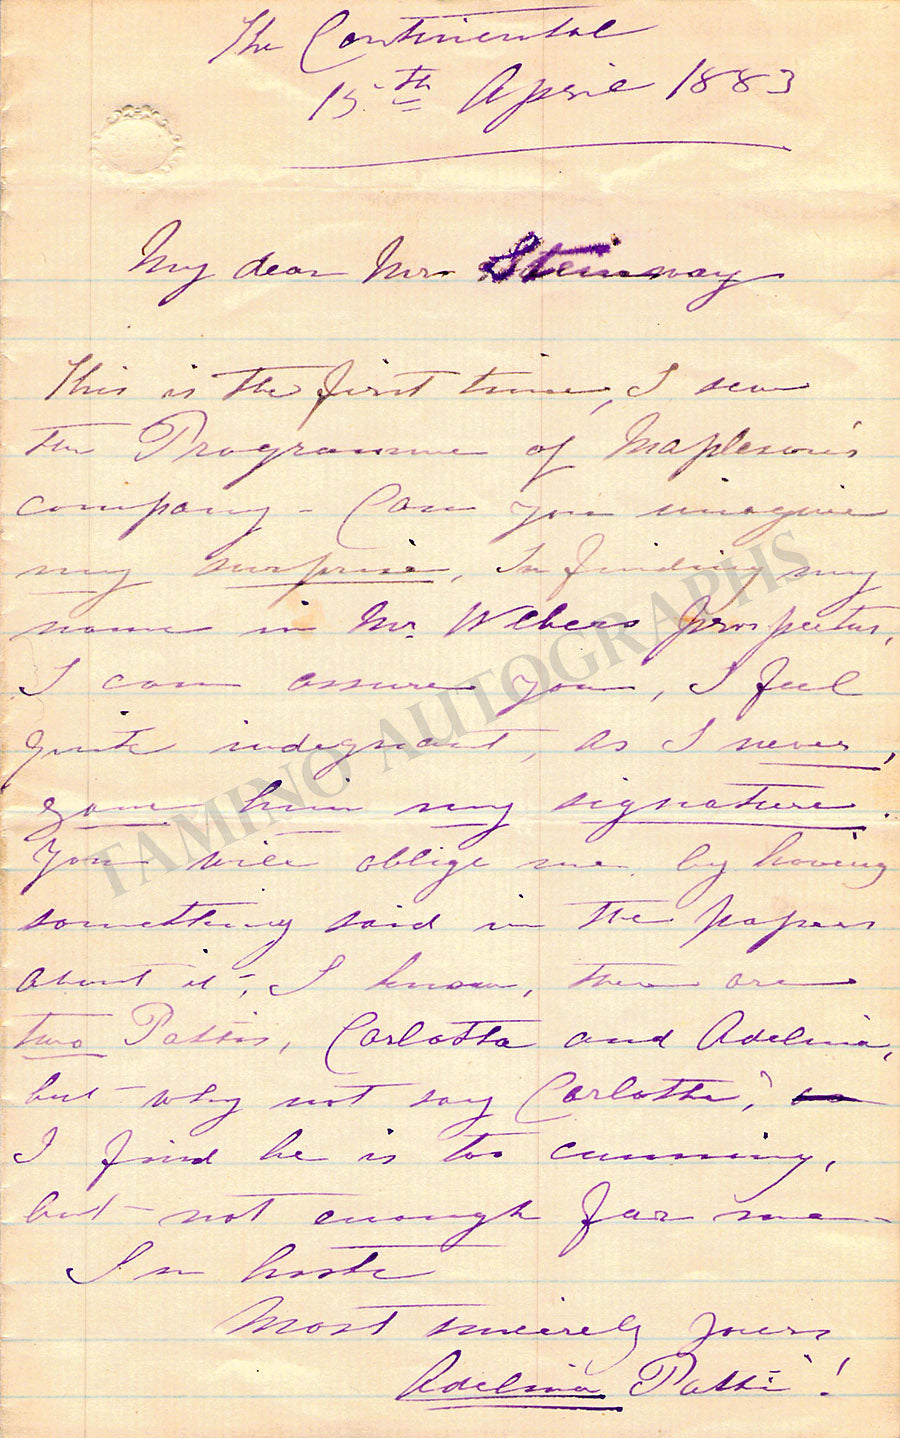 The Continental
15th April 1883
My dear Mr Steinway
This is the first time, I see
the Programme of Mapleson's
company - Can you imagine
my surprise, in finding my
name in Mr Webers Prospectus,
I can assure you, I feel
quite indignant, as I never,
gave him my signature.
You will oblige me by having
something said in the papers
about it -, I know, there are
two Pattis, Carlotta and Adelina,
but - why not say Carlotta?
I find he is too cunning,
but - not enough for me -
In haste
Most sincerely yours
Adelina Patti!
TAMINO AUTOGRAPHS